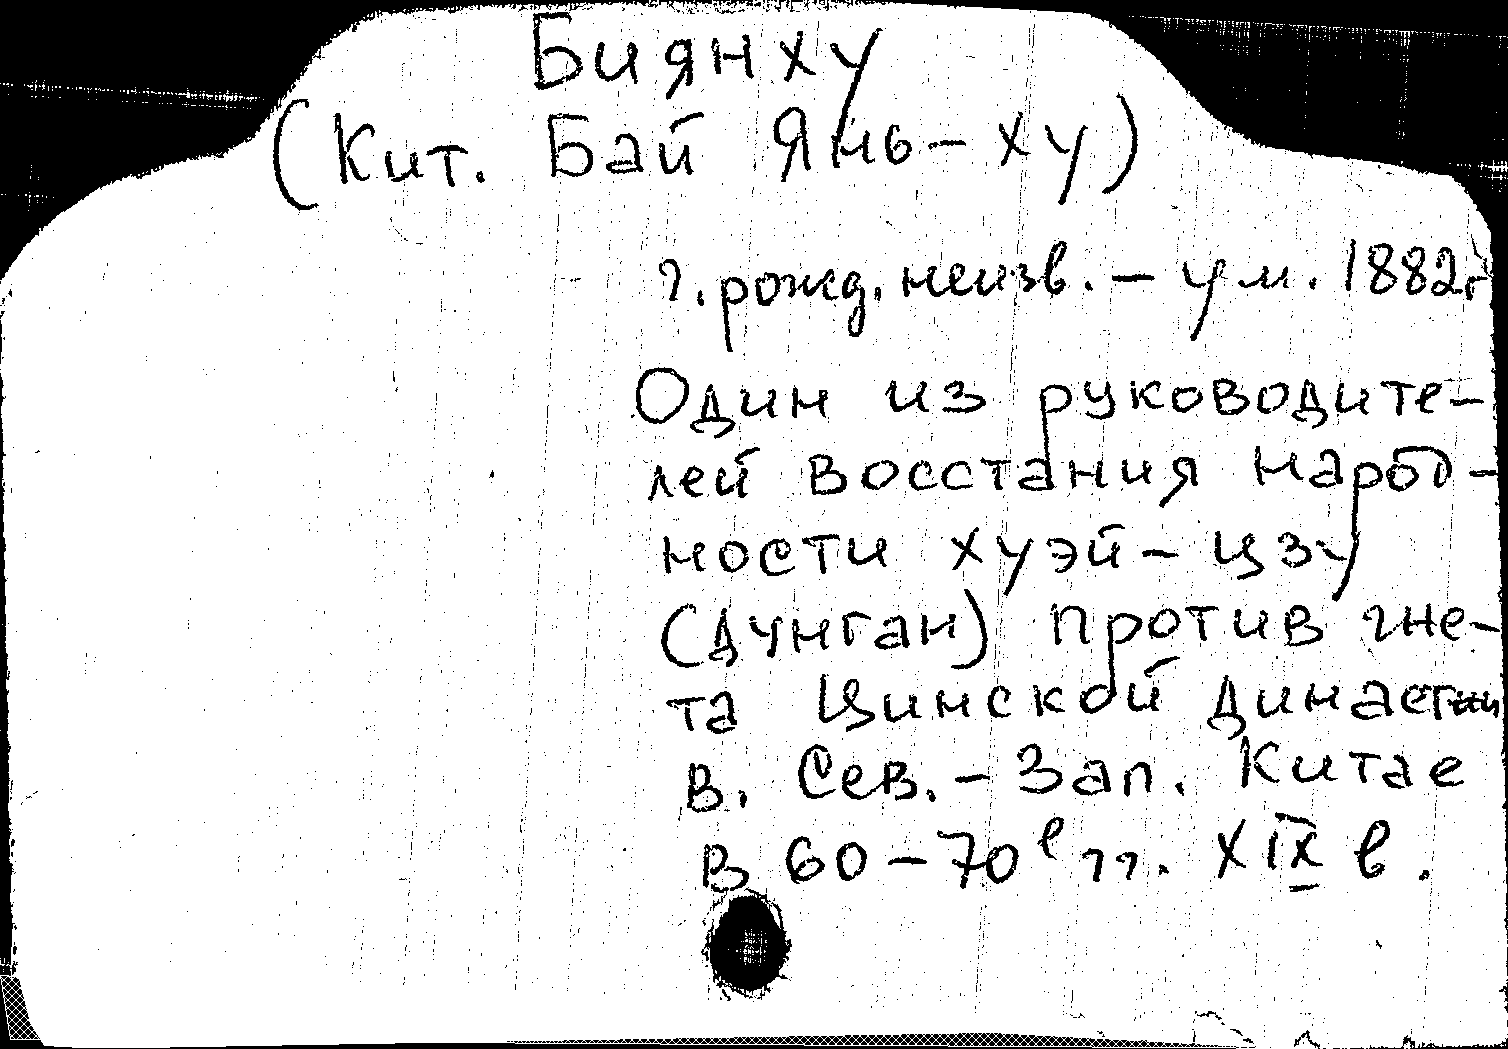 Биянху
(Кит. Бай Янь-ху)
г. рожд. неизв. - ум. 1882 г
Один из руководите-
лей восстания народ-
ности хуэй-цзу
(дунган) против гне-
та Цинской династии
в. Сев.-Зап. Китае
в 60-70е гг. XIX в.